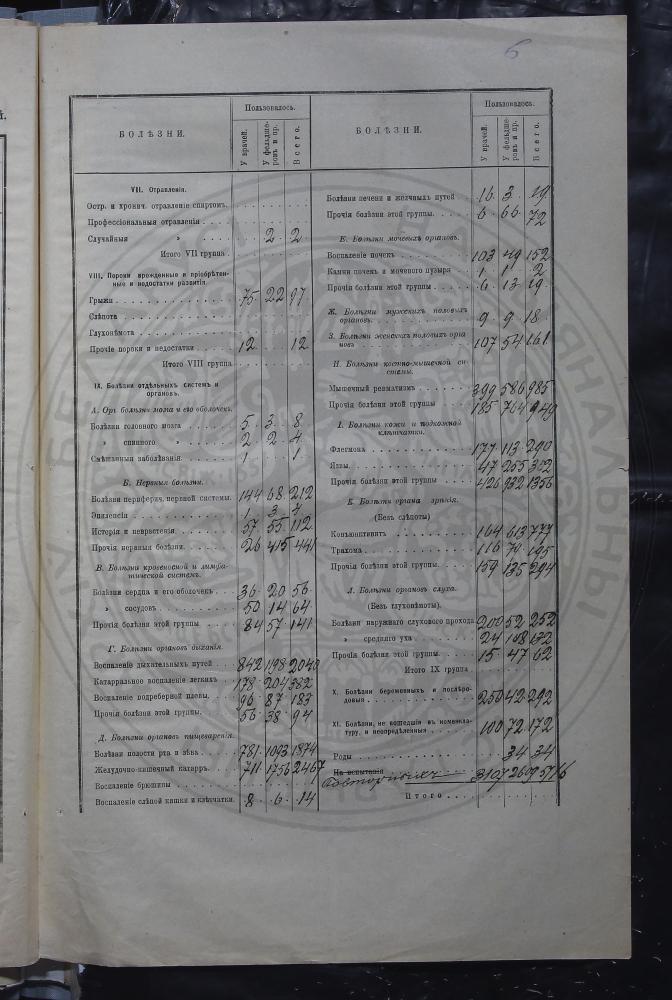 6
БОЛѢЗНИ.
Пользовалось.
У врачей.
У фельдше-
ровъ и пр.
Всего.
VII. Отравленія.
Остр. и хронич. отравленіе спиртомъ
Профессіональныя отравленія
Случайныя » 2 2
Итого VII группа
VIII. Пороки врожденные и пріобрѣтен-
ные и недостатки развитія.
Грыжи 75 22 97
Слѣпота
Глухонѣмота
Прочіе пороки и недостатки 12 12
Итого VIII группа
IX. Болѣзни отдѣльныхъ системъ и
органовъ.
А. Орг. болѣзни мозга и его оболочекъ.
Болѣзни головного мозга 5 3 8
» спинного » 2 2 4
Смѣшанныя заболѣванія 1 1
Б. Нервныя болѣзни.
Болѣзни периферич. нервной системы 144 68 212
Эпилепсія 1 3 4
Истерія и неврастенія 57 55 112
Прочія нервныя болѣзни 26 415 441
В. Болѣзни кровеносной и лимфа-
тической системъ.
Болѣзни сердца и его оболочекъ 36 20 56
» сосудовъ 50 14 64
Прочія болѣзни этой группы 84 57 141
Г. Болѣзни органовъ дыханія.
Воспаленіе дыхательныхъ путей 842 1198 2040
Катарральное воспаленіе легкихъ 178 204 382
Воспаленіе подреберной плевы 96 87 183
Прочія болѣзни этой группы 56 38 94
Д. Болѣзни органовъ пищеваренія.
Болѣзни полости рта и зѣва 781 1093 1874
Желудочно-кишечный катарръ 711 1756 2467
Воспаленіе брюшины
Воспаленіе слѣпой кишки и клѣтчатки 8 6 14
БОЛѢЗНИ.
Пользовалось.
У врачей.
У фельдше-
ровъ и пр.
Всего.
Болѣзни печени и желчныхъ путей 16 3 19
Прочія болѣзни этой группы 6 66 72
Е. Болѣзни мочевыхъ органовъ.
Воспаленіе почекъ 103 49 152
Камни почекъ и мочевого пузыря 1 1 2
Прочія болѣзни этой группы 6 13 19
Ж. Болѣзни мужскихъ половыхъ
органовъ 9 9 18
З. Болѣзни женскихъ половыхъ орга
новъ 107 54 161
И. Болѣзни костно-мышечной си-
стемы.
Мышечный ревматизмъ 399 586 985
Прочія болѣзни этой группы 185 764 949
І. Болѣзни кожи и подкожной
клѣтчатки.
Флегмона 177 113 290
Язвы 47 255 302
Прочія болѣзни этой группы 426 932 1356
К. Болѣзни органа зрѣнія.
(Безъ слѣпоты)
Конъюнктивитъ 164 613 777
Трахома 116 79 195
Прочія болѣзни этой группы 159 135 294
Л. Болѣзни органовъ слуха.
(Безъ глухонѣмоты).
Болѣзни наружнаго слухового прохода 200 52 252
» средняго уха 24 108 132
Прочія болѣзни этой группы 15 47 62
Итого IX группа
X. Болѣзни беременныхъ и послѣро-
довыя 250 42 292
XI. Болѣзни, не вошедшія въ номенкла-
туру, и неопредѣленныя 100 72 172
Роды 34 34
На испытаніи
3107 2609 5716
Итого